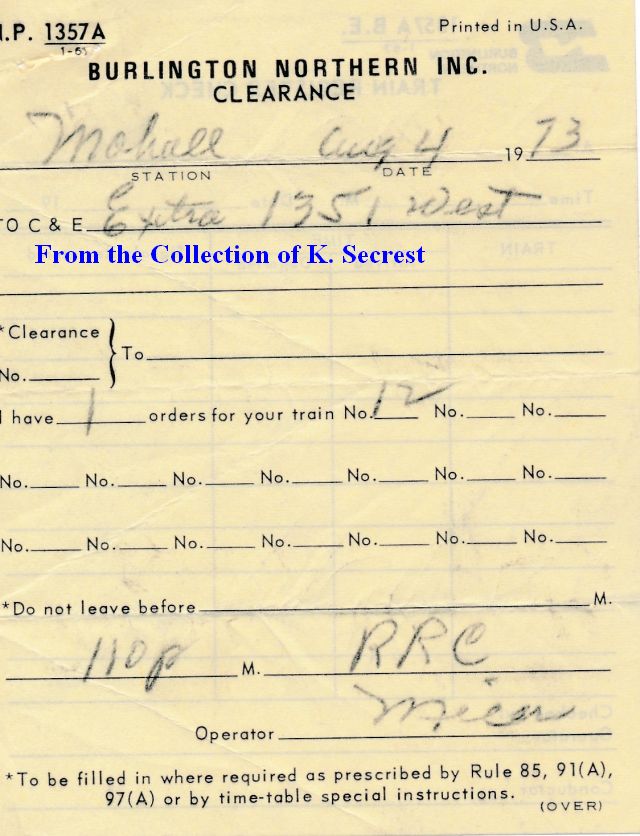 .P. 1357A
1-69
Printed in U.S.A.
BURLINGTON NORTHERN INC.
CLEARANCE
Mohall Aug 4 1973
STATION DATE
TO C & E Extra 1351 West
From the Collection of K. Secrest
*Clearance
No. To
I have 1 orders for your train No. 12 No. No.
No. No. No. No. No. No. No.
No. No. No. No. No. No. No.
*Do not leave before M.
110p M. RRC
Operator
*To be filled in where required as prescribed by Rule 85, 91(A),
97(A) or by time-table special instructions.
(OVER)